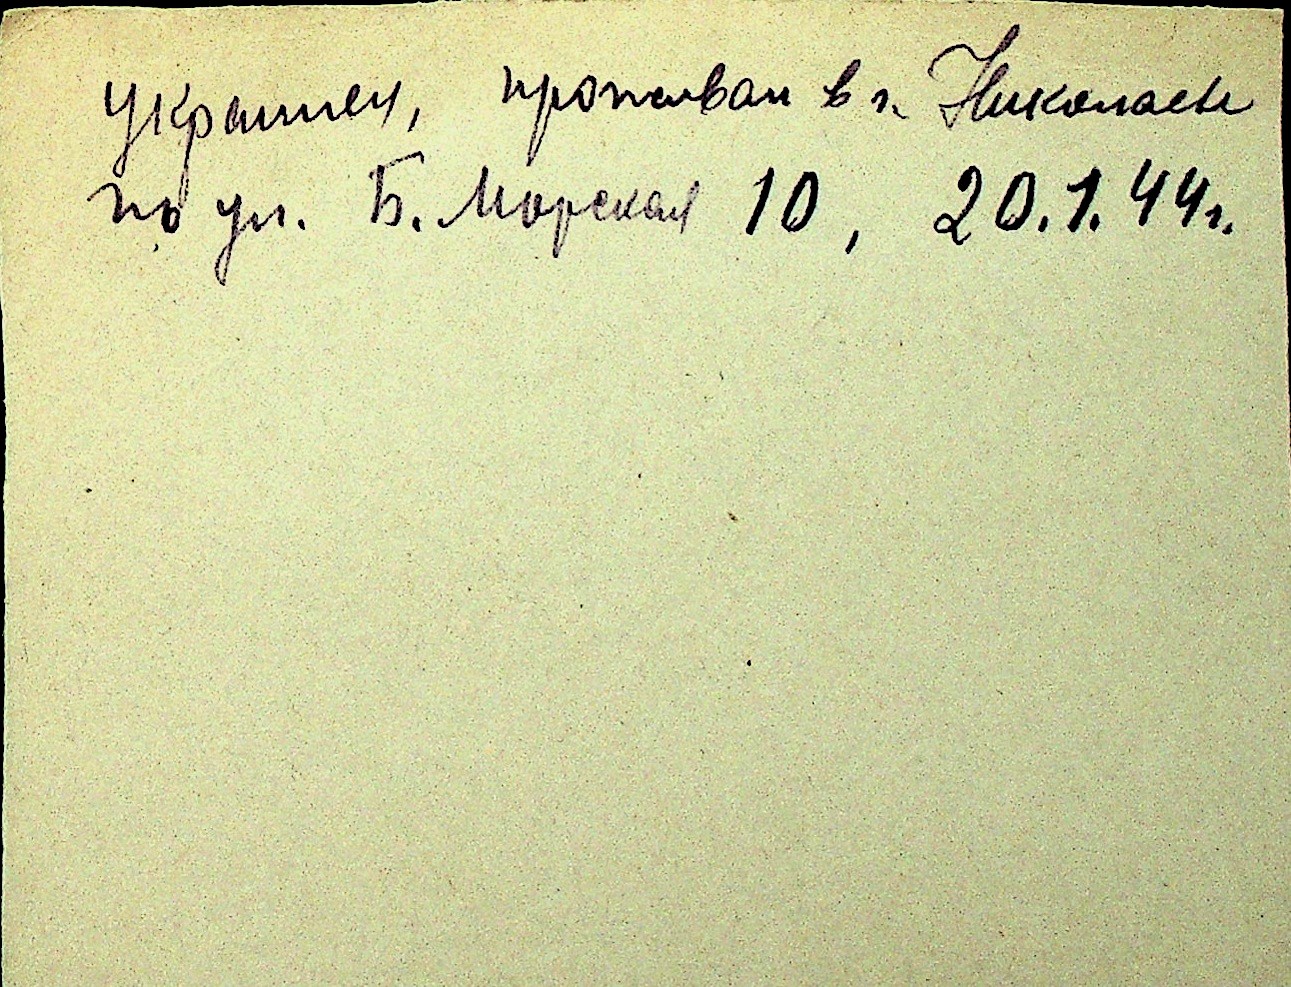 украинец, проживал в г. Николаев
по ул. Б. Морская 10, 20.1.44г.